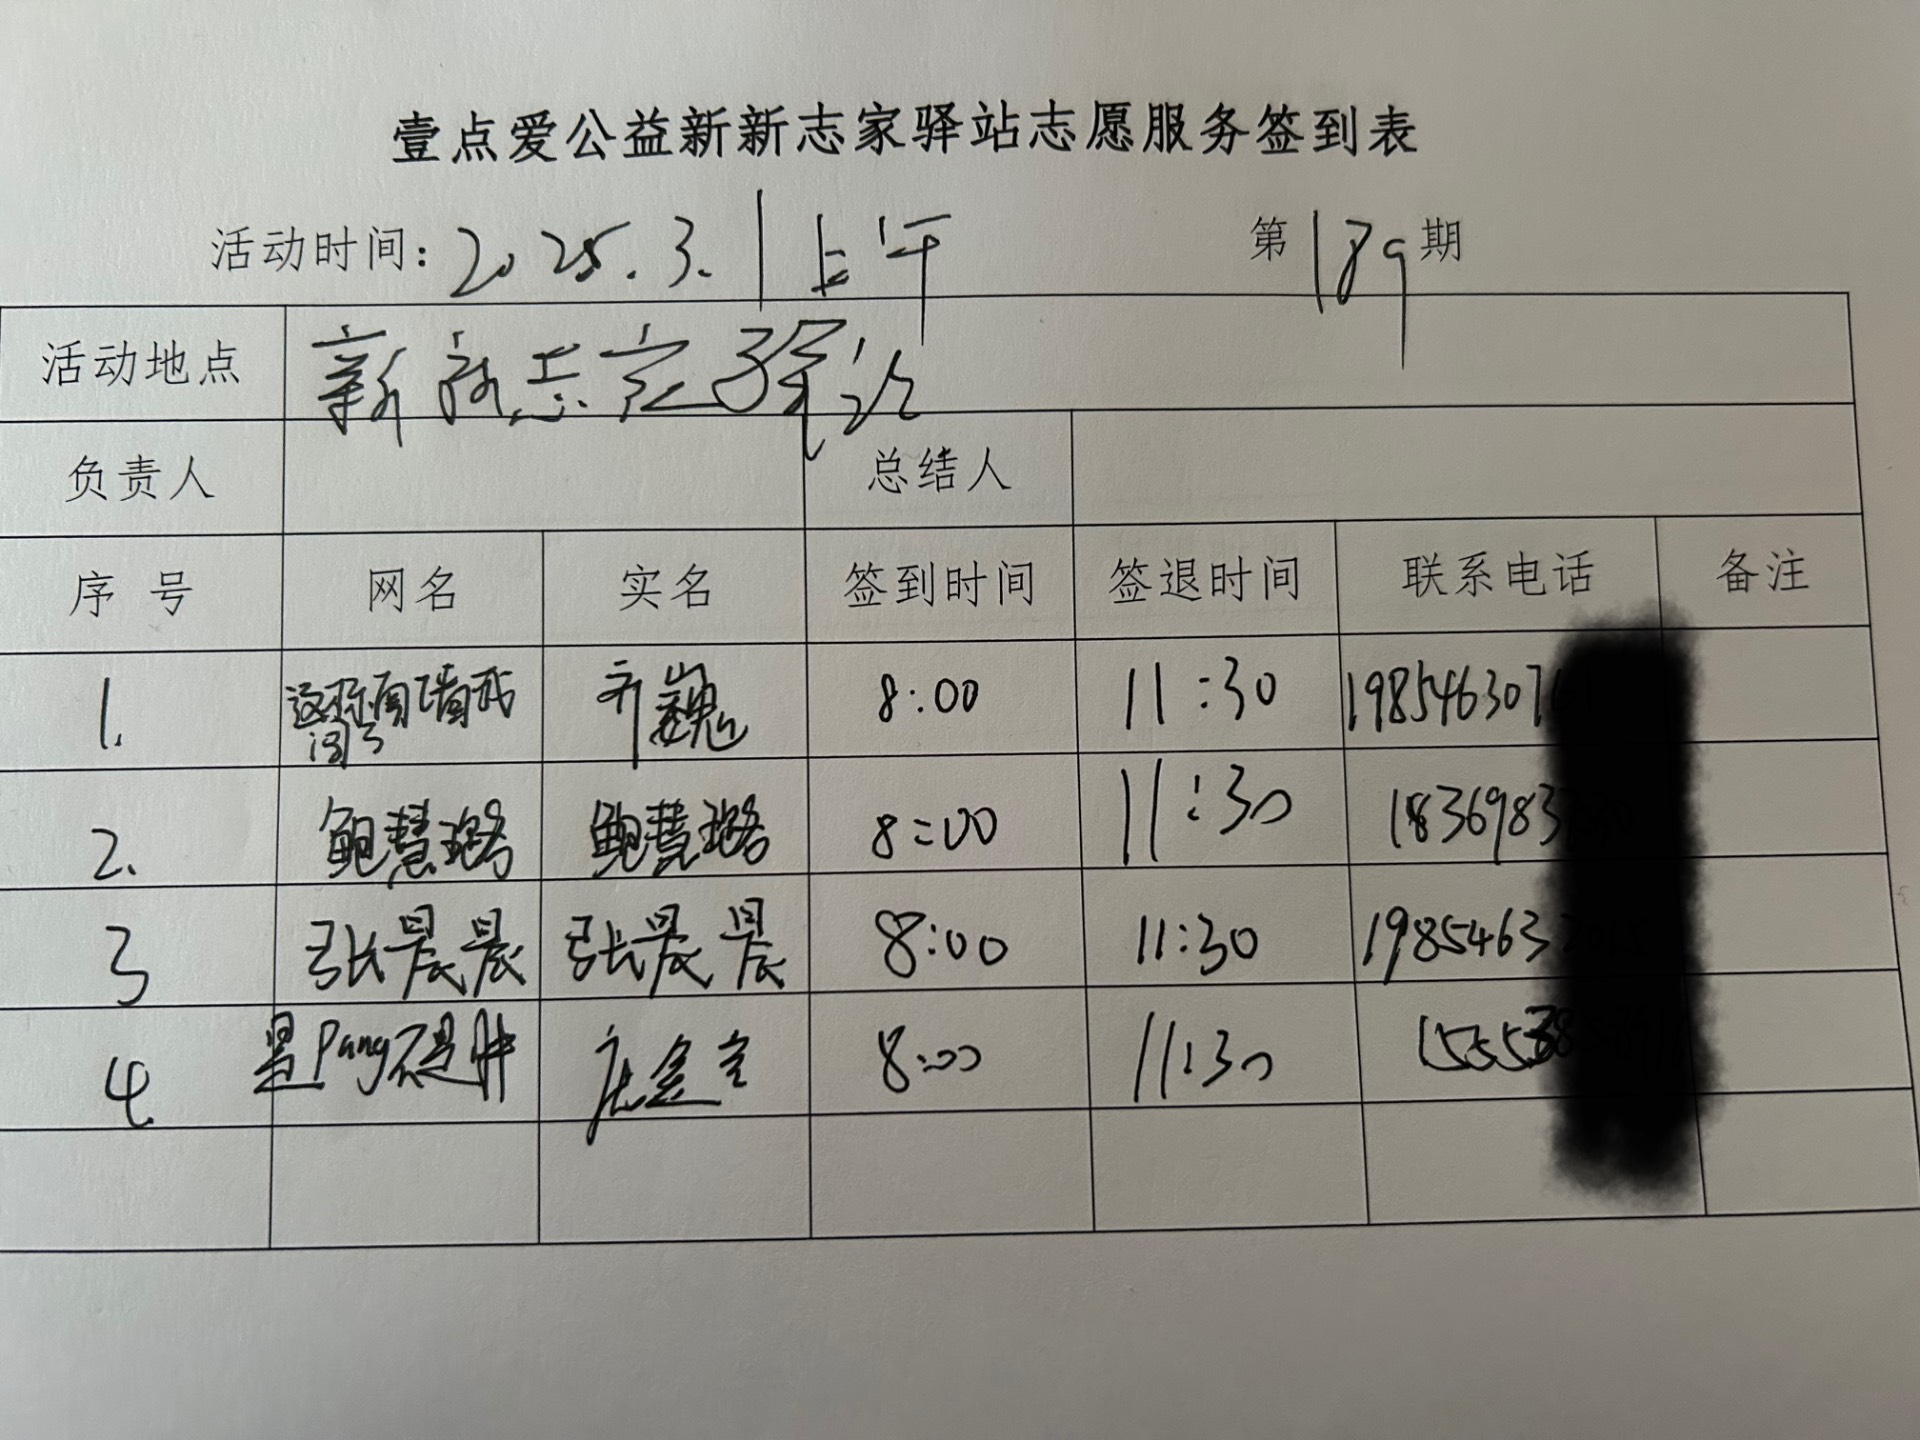 壹点爱公益新新志家驿站志愿服务签到表
活动时间：2025.3.1上午 第189期
活动地点 新新志家驿站
负责人 总结人
序号 网名 实名 签到时间 签退时间 联系电话 备注
1. 齐巍 8:00 11:30 198546307
2. 鲍慧璐 鲍慧璐 8:00 11:30 1836983
3 张晨晨 张晨晨 8:00 11:30 1985463
4. 是Pang不是胖 8:00 11:30 15553